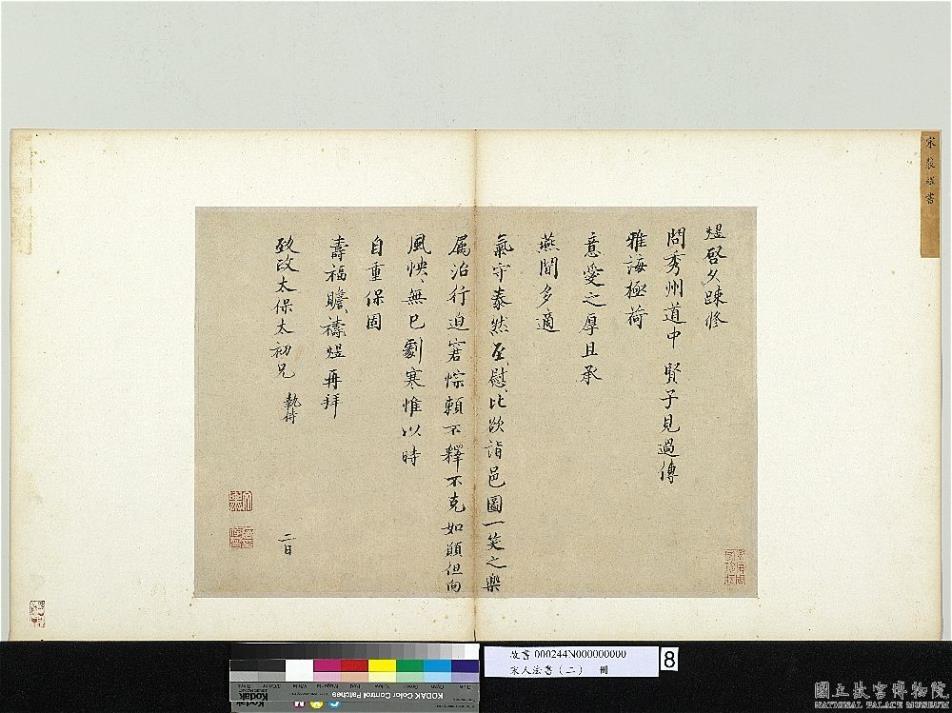 宋張煜書
煜啓久踈修
問秀州道中 賢子見過傳
雅誨極荷
意愛之厚且承
燕閒多適
氣守泰然至慰比欲詣邑圖一笑之樂
屬沿行迫窘悰賴不釋不克如願但向
風怏怏無已劇寒惟以時
自重保固
壽福瞻禱煜再拜
致政太保太初兄 執侍
二日
故書 000244N000000000
宋人法書(二) 冊
8
Kodak
KODAK Color Control Patches
國立故宮博物院
NATIONAL PALACE MUSEUM